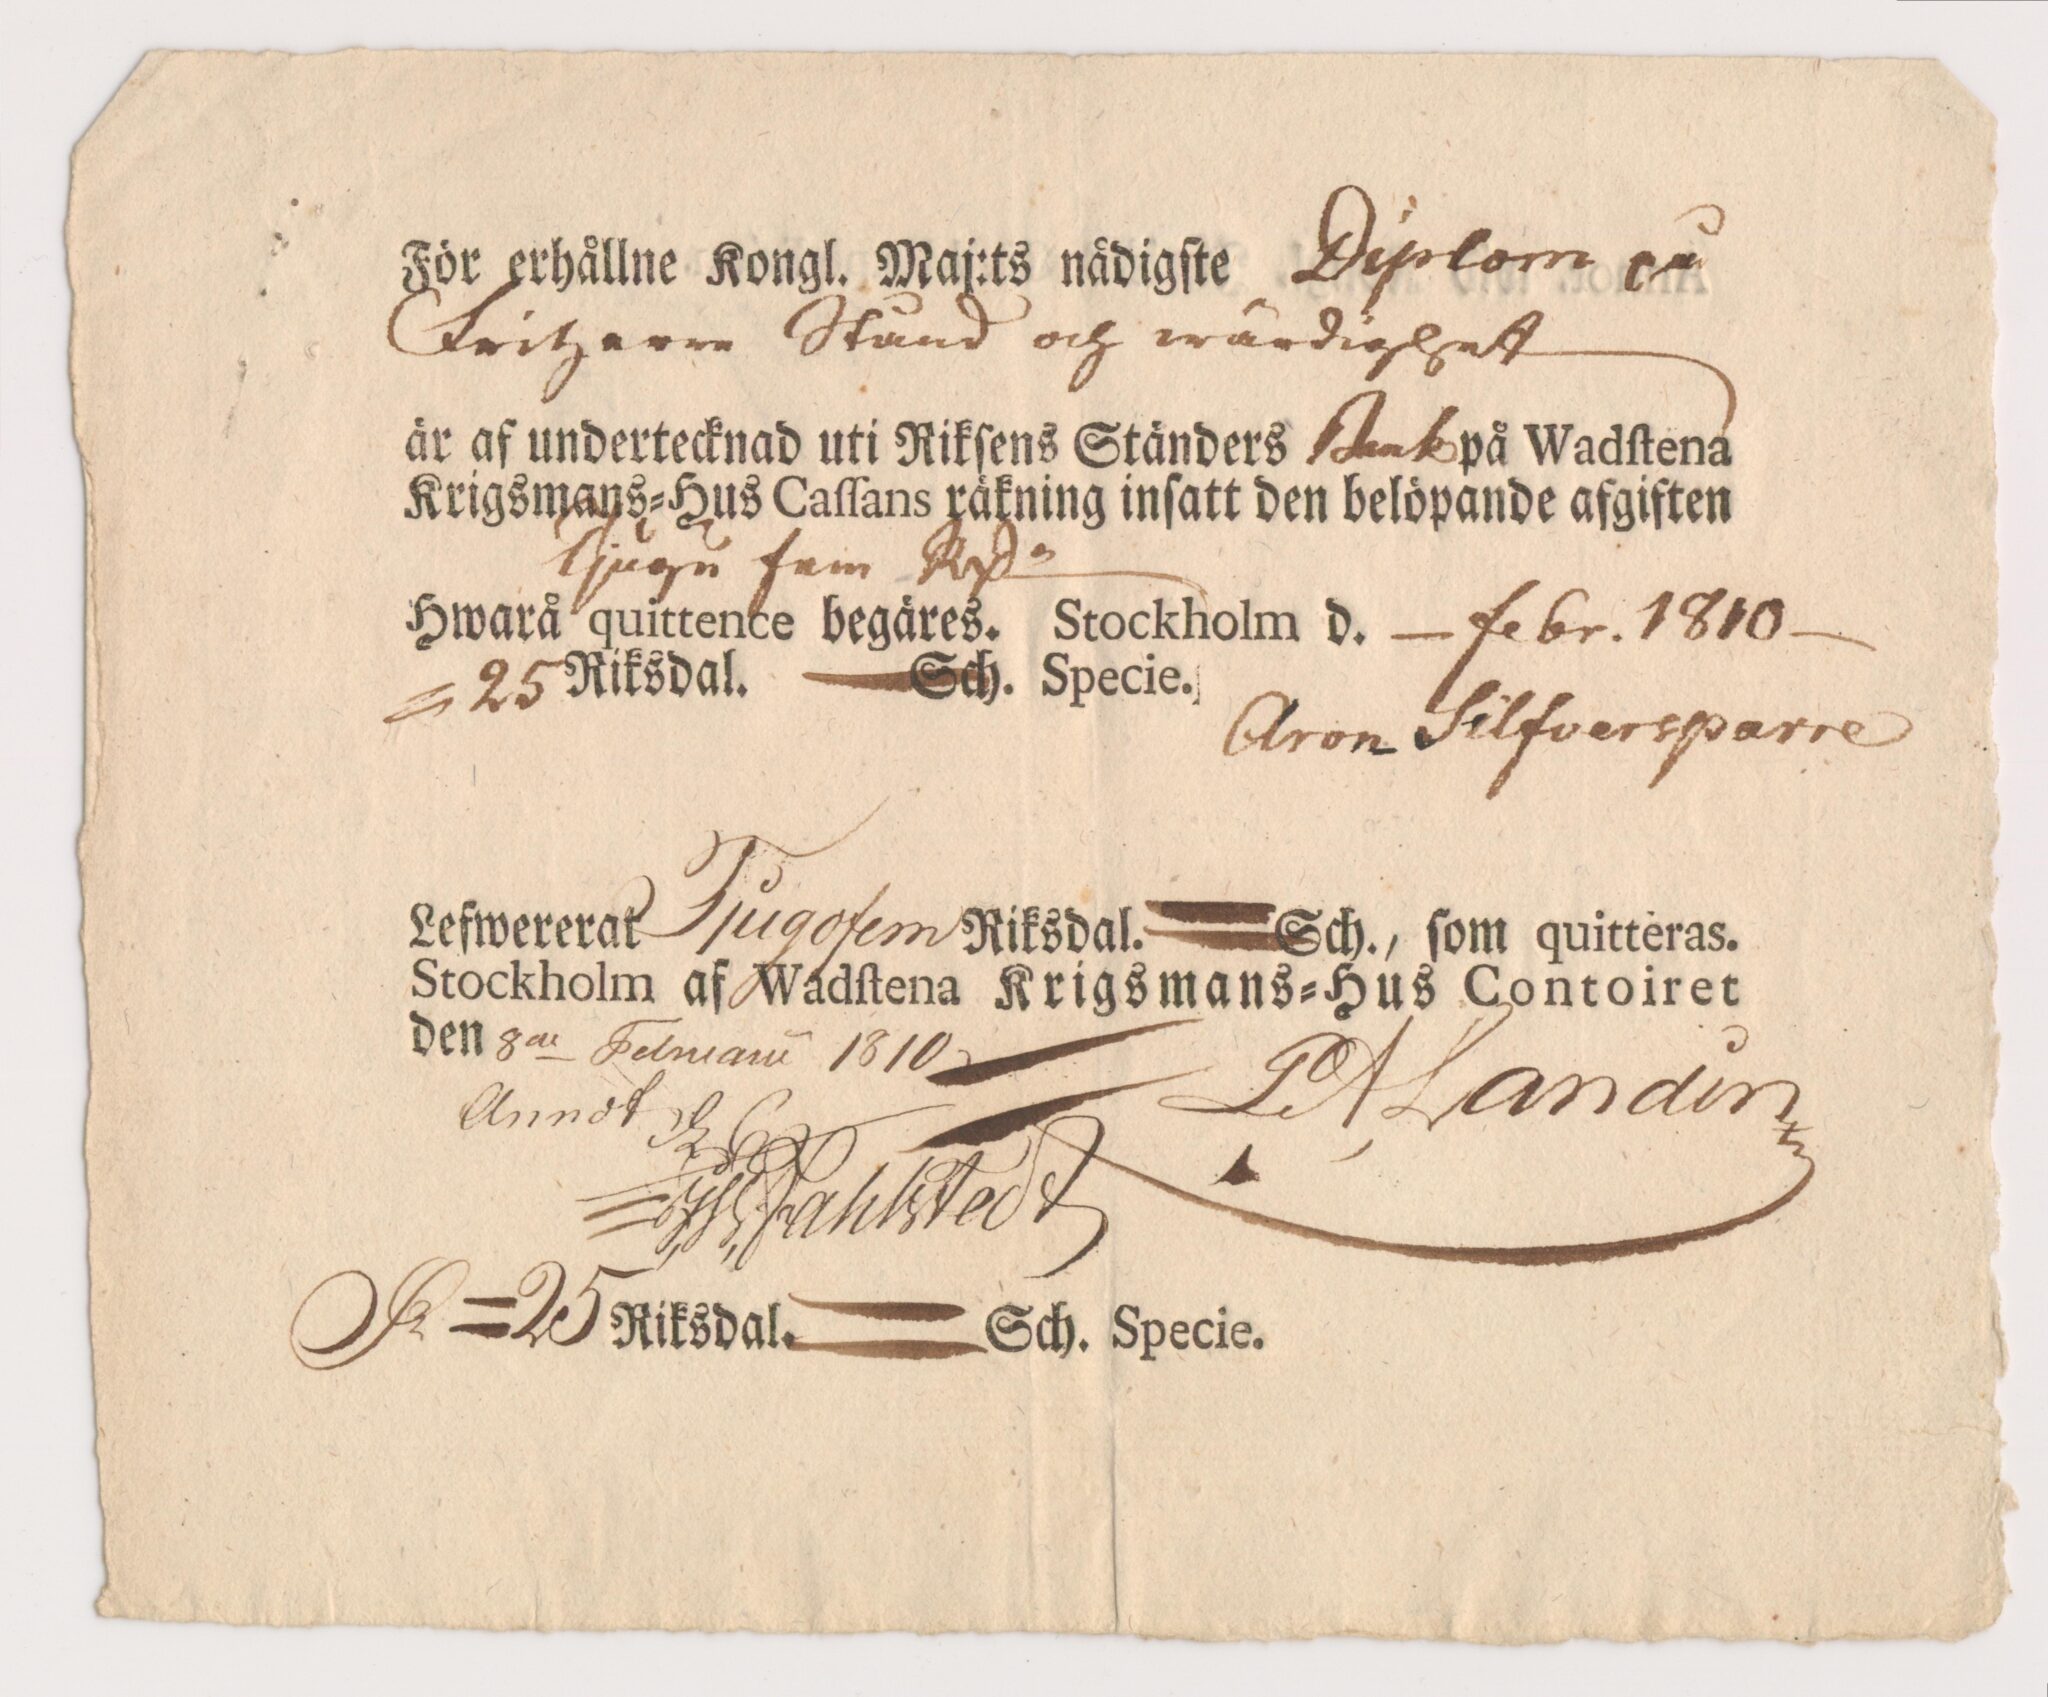 För erhållne Kongl. Maj:ts nådigste Diplom på
Friherre Stånd och wärdighett
är af undertecknad uti Riksens Ständers Bank på Wadstena
Krigsmans-Hus Cassans räkning insatt den belöpande afgiften
Tjugu fem Rd
Hwarå quittence begäres. Stockholm d. — febr. 1810 —
= 25 Riksdal. — Sch. Specie.
Aron Silfversparre
Lefwererat Tjugofem Riksdal. = Sch., som quitteras.
Stockholm af Wadstena Krigsmans-Hus Contoiret
den 8de Februarii 1810
P A Landin
Annot
Fahlstedt
= 25 Riksdal. = Sch. Specie.